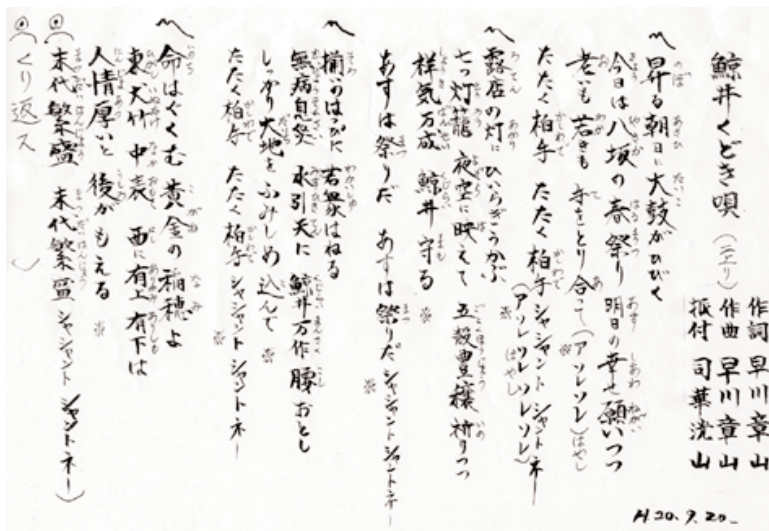 鯨井くどき唄(二上り)
作詞 早川章山
作曲 早川章山
振付 司華洸山
昇る朝日に大鼓がひびく
今日は八坂の春祭り 明日の幸せ願いつつ
老いも若きも手をとり合って(アソレソレ)はやし
たたく柏手 たたく柏手 シャシャント シャントネー
(アソレソレソレソレ)はやし
露店の灯に ひいらぎうかぶ
七つ灯籠 夜空に映えて 五穀豊穣祈りつつ
祥気万成 鯨井守る ※
あすは祭りだ あすは祭りだ シャシャントシャントネー
揃いのはっぴに 若衆はねる
無病息災 水引天に 鯨井万作 腰おとし
しっかり大地を ふみしめ込んで ※
たたく柏手 たたく柏手 シャシャント シャントネー
命はぐくむ 黄金の稲穂よ
東 犬竹 中表 西に有上有下は
人情厚いと 後がもえる ※
末代繁盛 末代繁盛 シャシャント シャントネー)
くり返ス
H.20.9.20